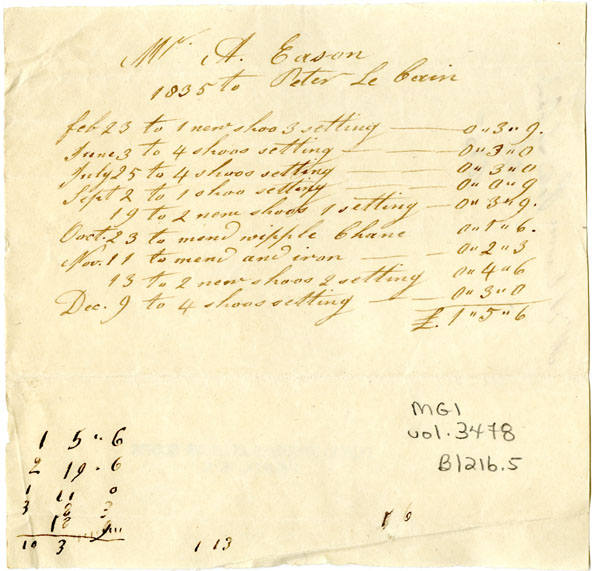 Mr. A. Eason
1835 to Peter Le Cain
feb 23 to 1 new shoo 3 setting — 0 " 3 " 9.
June 3 to 4 shoos setting — 0 " 3 " 0
July 25 to 4 shoos setting — 0 " 3 " 0
Sept 2 to 1 shoo setting — 0 " 0 " 9
19 to 2 new shoos 1 setting — 0 " 3 " 9.
Ooct. 23 to mend wipple Chane 0 " 1 " 6.
Nov. 11 to mend and iron — 0 " 2 " 3
13 to 2 new shoos 2 setting 0 " 4 " 6
Dec. 9 to 4 shoos setting — 0 " 3 " 0
£. 1 " 5 " 6
1 5 " 6
2 19 " 6
1 11 0
3
18
10 3
1 13
MG1
vol. 3478
B1216.5